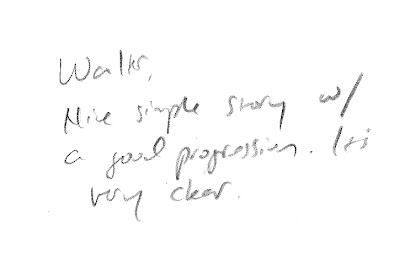 Walter,
Nice simple story w/
a good progression. It's
very clear.